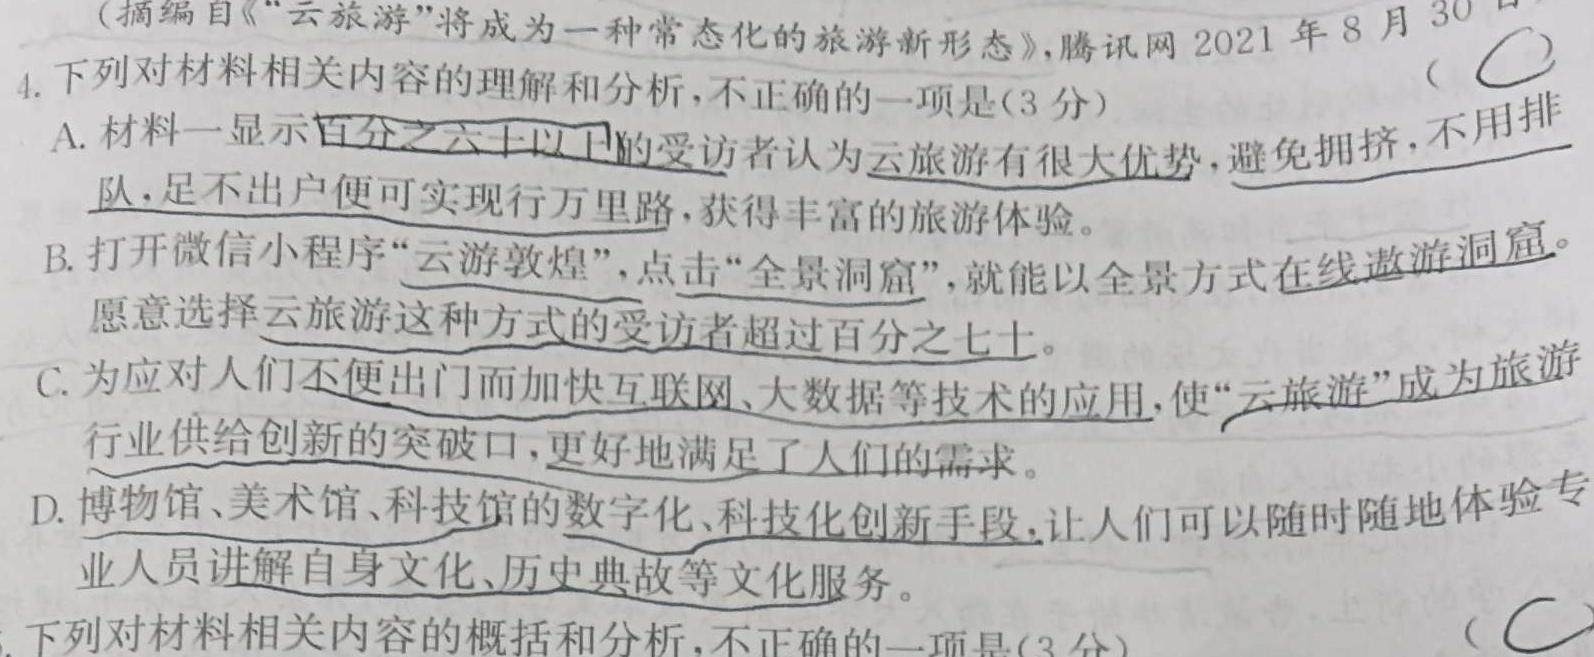 (摘编自《“云旅游”将成为一种常态化的旅游新形态》,腾讯网 2021 年 8 月 30 日
4. 下列对材料相关内容的理解和分析,不正确的一项是(3 分) ( C
A. 材料一显示百分之六十以上的受访者认为云旅游有很大优势,避免拥挤,不用排
队,足不出户便可实现行万里路,获得丰富的旅游体验。
B. 打开微信小程序“云游敦煌”,点击“全景洞窟”,就能以全景方式在线遨游洞窟。
愿意选择云旅游这种方式的受访者超过百分之七十。
C. 为应对人们不便出门而加快互联网、大数据等技术的应用,使“云旅游”成为旅游
行业供给创新的突破口,更好地满足了人们的需求。
D. 博物馆、美术馆、科技馆的数字化、科技化创新手段,让人们可以随时随地体验专
业人员讲解自身文化、历史典故等文化服务。
. 下列对材料相关内容的概括和分析,不正确的一项是(3 分) ( C